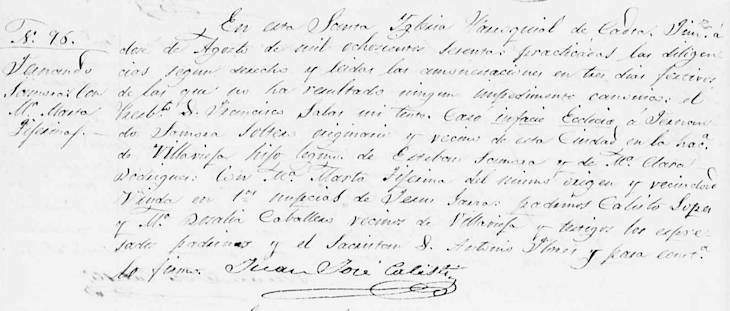 Nº. 96.
Fernando
Zamora: con
Mª. Marta
En esta Santa Yglesia Parroquial de Cadra. Jimz. á
dos de Agosto de mil ochocientos sesenta: practicadas las diligen
cias segun derecho y leidas las amonestaciones en tres dias festivos
de las que no ha resultado ningun impedimento canonico: el
Presbº. D. Francisco Salas mi tente. Caso infacie Eclecia a Fernan
do Zamora soltero originario y vecino de esta Ciudad en la hacª.
de Villavieja hijo legmo. de Esteban Zamora y de Mª. Clara
Rodriguez: con Mª. Marta del mismo origen y vecindad
Viuda en 1as. nupcias de Jesus padrinos Calisto Lopez
y Mª. Rosalia Caballero vecinos de Villavieja y testigos los espre
sados padrinos y el Sacristan D. Antonio Flores y para constª.
lo firmo. Juan José Calisti